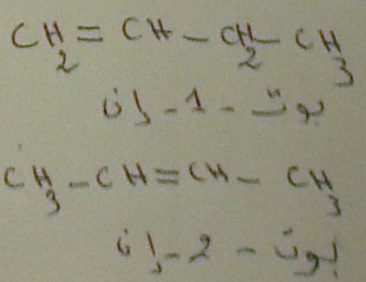 CH₂=CH-CH₂-CH₃
بوت - 1 - إن
CH₃-CH=CH-CH₃
بوت - 2 - إن